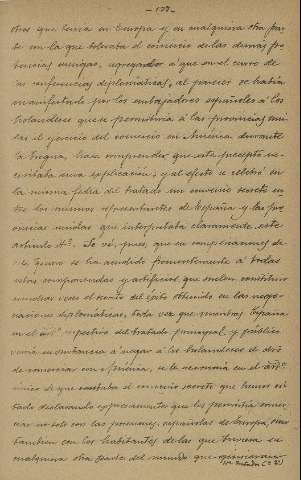 - 177 -
otras que tenia en Europa y en cualquiera otra par
te en la que toleraba el comercio de las demas po
tencias amigas, agregandose á que en el curso de
las conferencias diplomáticas, al parecer se habia
manifestado por los embajadores españoles á los
holandeses que se permitiria á las provincias uni
das el ejercicio del comercio en América durante
la tregua, hizo comprender que este precepto ne
cesitaba una explicacion; y al efecto se celebró en
la misma fecha del tratado un convenio secreto en
tre los mismos representantes de España y las pro
vincias unidas que interpretaba claramente este
artículo 4º. Se vé, pues, que en
se ha acudido frecuentemente á todas
estas y artificios que suelen constituir
muchas veces el secreto del éxito obtenido en las nego
ciaciones diplomáticas, toda vez que mientras España
en el artº respectivo del tratado principal y público
venia en sustancia á negar á los holandeses el dro
de comerciar con América, se le reconocia en el artº
único de que constaba el convenio secreto que hemos ci
tado declarando expresamente que les permitiria comer
ciar no solo con las posesiones españolas de Europa, sino
tambien con los habitantes de las que tuviera en
cualquiera otra parte del mundo que